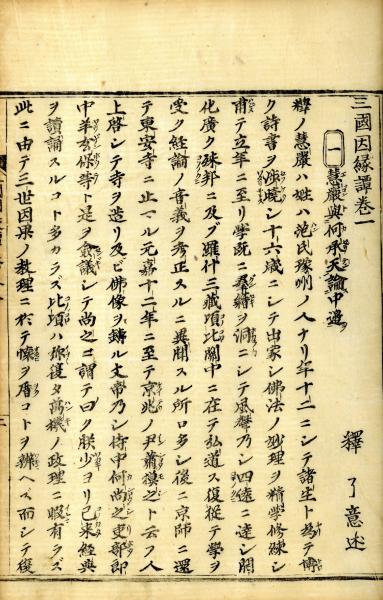 三國因縁譚巻一
釋 了意 述
一 慧嚴與何承天論中邊
釋ノ慧嚴ハ姓ハ范氏豫州ノ人ナリ年十二ニシテ諸生ト爲テ博
ク詩書ヲ渉曉シ十六歳ニシテ出家シ佛法ノ妙理ヲ精學修練シ
甫テ立年ニ至リ學既ニ羣籍ヲ洞ニシテ風聲乃シ四遠ニ達シ
化廣ク殊邦ニ及ブ羅什三藏頃比關中ニ在テ弘道ス復從テ學ヲ
受ク經論ノ音義ヲ考正スルニ異聞スル所ロ多シ後ニ京師ニ還
テ東安寺ニ止マル元嘉十二年ニ至テ京兆ノ尹蕭摸之ト云フ人
上啓シテ寺ヲ造リ及ビ佛像ヲ鑄ル文帝乃シ侍中何尚之吏部郎
中羊玄保等ト是ヲ僉議シテ尚之ニ謂テ曰ク朕少ヨリ已来經典
ヲ讀誦スルコト多カラズ比頃ハ弥復タ萬機ノ政理ニ暇有ラズ
此ニ由テ三世因果ノ教理ニ於テ懐ヲ厝コトヲ辨ヘズ而シテ復